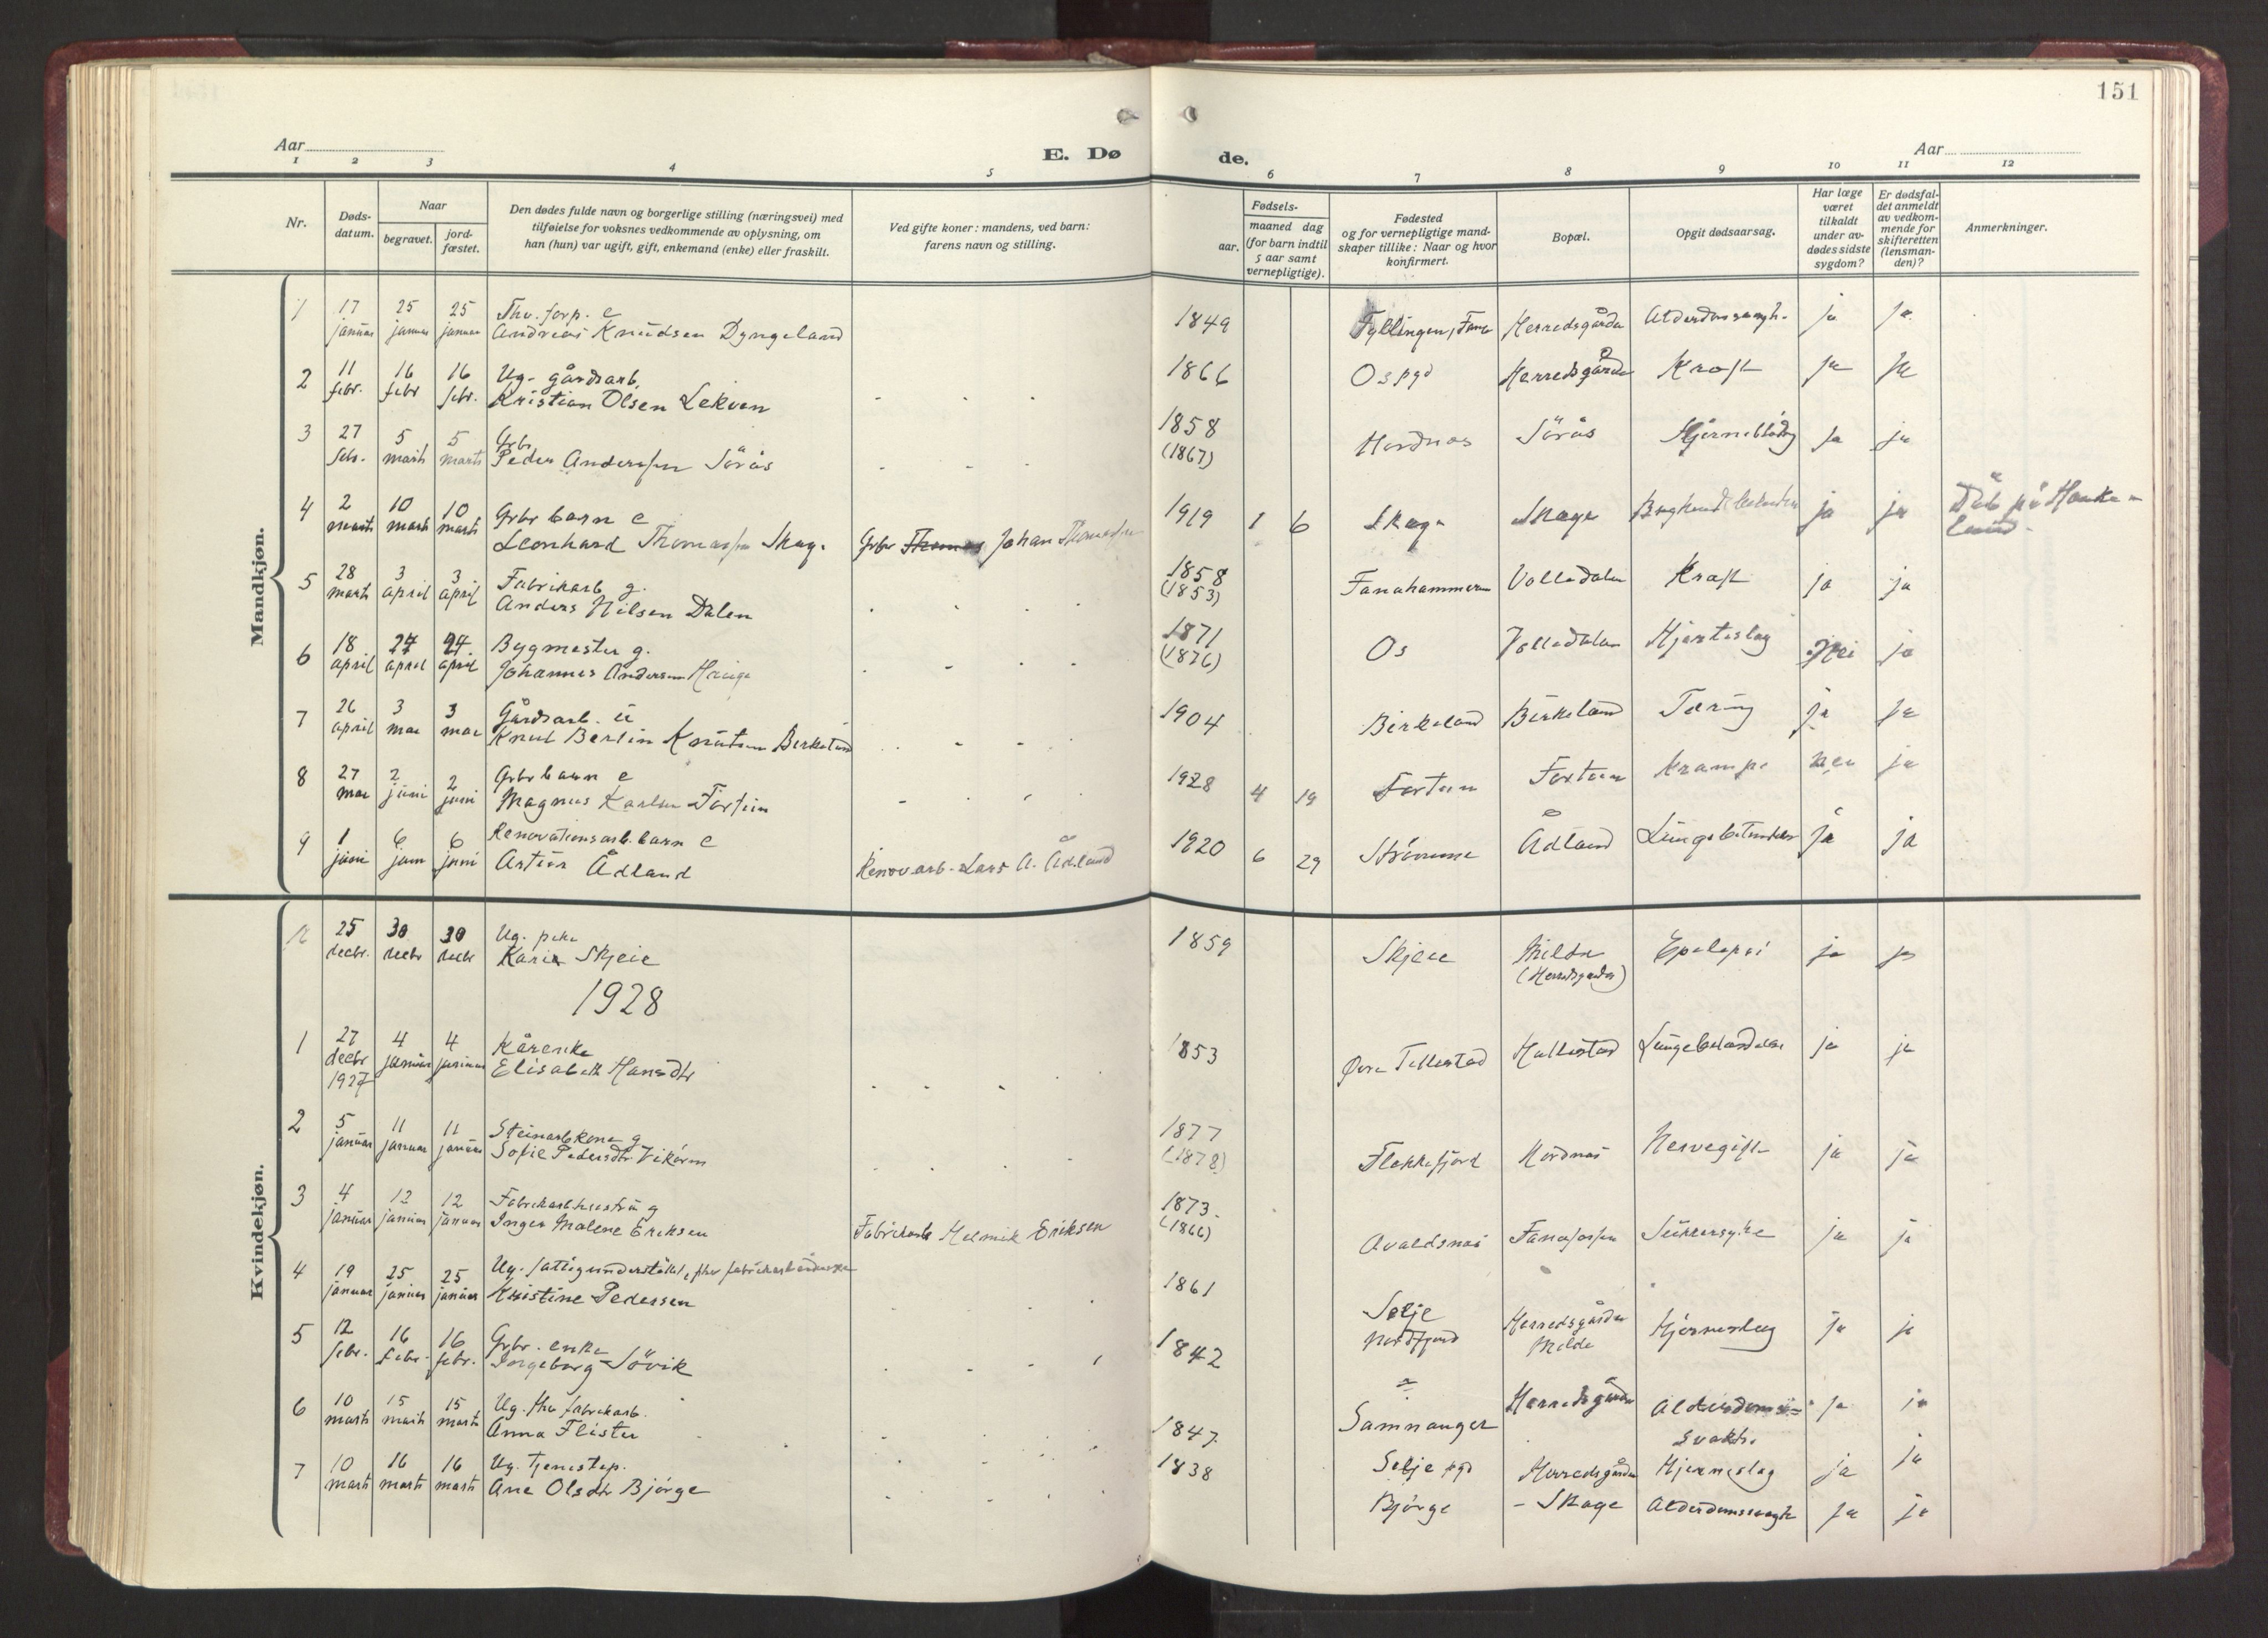 151
Aar
E. Dø
de.
Aar
1 2 3 4 5 6 7 8 9 10 11 12
Nr.
Døds-
datum.
Naar
begravet.
jord-
fæstet.
Den dødes fulde navn og borgerlige stilling (næringsvei) med
tilføielse for voksnes vedkommende av oplysning, om
han (hun) var ugift, gift, enkemand (enke) eller fraskilt.
Ved gifte koner: mandens, ved barn:
farens navn og stilling.
Fødsels-
aar.
maaned dag
(for barn indtil
5 aar samt
vernepligtige).
Fødested
og for vernepligtige mand-
skaper tillike: Naar og hvor
konfirmert.
Bopæl.
Opgit dødsaarsag.
Har læge
været
tilkaldt
under av-
dødes sidste
sygdom?
Er dødsfal-
det anmeldt
av vedkom-
mende for
skifteretten
(lensman-
den)?
Anmerkninger.
Mandkjøn.
1 17 25 25 Thv. forp. e 1849 Fyllingen, Fana Herredsgården Alderdomssvagh. ja ja
januar januar januar Andreas Knudsen Dyngeland
2 11 16 16 Ug. gårdsarb. 1866 Os pgd Herredsgården Kræft ja ja
febr. febr febr. Kristian Olsen Lekven
3 27 5 5 Grbr 1858 Hordnas Sörås Hjerneblödng ja ja
feb. marts marts Peder Anderssen Sörås (1867)
4 2 10 10 Grbr barn e 1919 1 6 Skage Skage ja ja Döde på Hauke-
marts marts marts Leonhard Thomassen Skage Grbr Thomas Johan Thomassen land.
5 28 3 3 Fabrikarb g. 1858 Fanahammeren Volledalen Kræft ja ja
marts april april Anders Nilsen Dalen (1853)
6 18 24 24. Bygmester g. 1871 Os Volledalen Hjerteslag Nei ja
april april april Johannes Andersen Hauge (1876)
7 26 3 3 Gårdsarb. u 1904 Birkeland Birkeland Tæring ja ja
april mai mai Knut Bertin Knutsen Birkeland
8 27 2 2 Grbr barn e 1928 4 19 Fortun Fortun Krampe nei ja
mai juni juni Magnus Karlsen Fortun
9 1 6 6 Renovationsarb. barn e 1920 6 29 Strömme Ådland Lungebetendelse ja ja
juni juni juni Artur Ådland Renov.arb. Lars A. Ådland
Kvindekjøn.
12 25 30 30 Ug. pike 1859 Skjeie Milde Epelepsi ja ja
decbr. decbr decbr Karie Skjeie (Herredsgården)
1928
1 27 4 4 Kårenke 1853 Övre Tellestad Hallestad Lungebetændelse ja ja
decbr januar januar Elisabeth Hansdtr
1927
2 5 11 11 Steinarbkone g 1877 Flekkefjord Hordnas Nervegift ja ja
januar januar januar Sofie Pedersdtr Vikören (1878)
3 4 12 12 Fabrikarbhustru g 1873. Avaldsnes Fanafossen Sukkersyke ja ja
januar januar januar Inger Malene Eriksen Fabrikarb Helmik Eriksen (1866)
4 19 25 25 Ug. fattigunderstöttet, fhv fabrikarbeiderske 1861 Selje Herredsgården Hjerneslag ja ja
januar januar januar Kristine Pedersen Nordfjord Milde
5 12 16 16 Grbr. enke 1842 Herredsgården Alderdoms- ja ja
febr. febr. febr. Ingeborg Sövik Samnanger svakh.
6 10 15 15 Ug. fhv fabrikarb. 1847 Selje pgd Herredsgården Hjerneslag ja ja
marts marts marts Anna Flister
7 10 16 16 Ug. Tjenestep. 1838 Bjørge - Skage Alderdomssvagh ja ja
marts marts marts Ane Olsdtr Bjørge